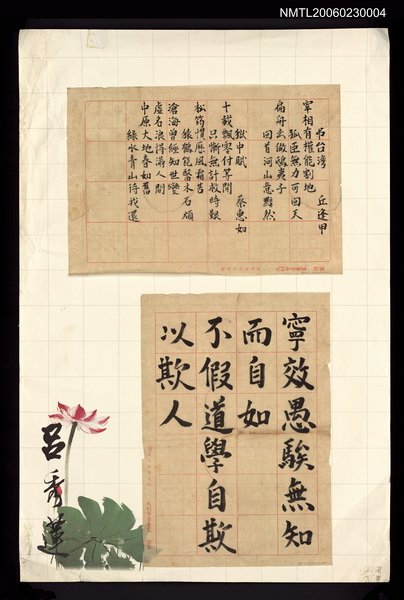 NMTL20060230004
弔台湾 丘逢甲
宰相有權能割地
孤臣無力可回天
扁舟去做鴟夷子
回首河山意黯然
獄中賦 蔡惠如
十載飄零付等閒
只慚無計救時艱
松筠慣歷風霜苦
猿鶴能馨木石頑
滄海曾經知世變
虛名浪得滿人間
中原大地春如舊
綠水青山待我還
寧效愚騃無知
而自如
不假道學自欺
以欺人
呂秀蓮